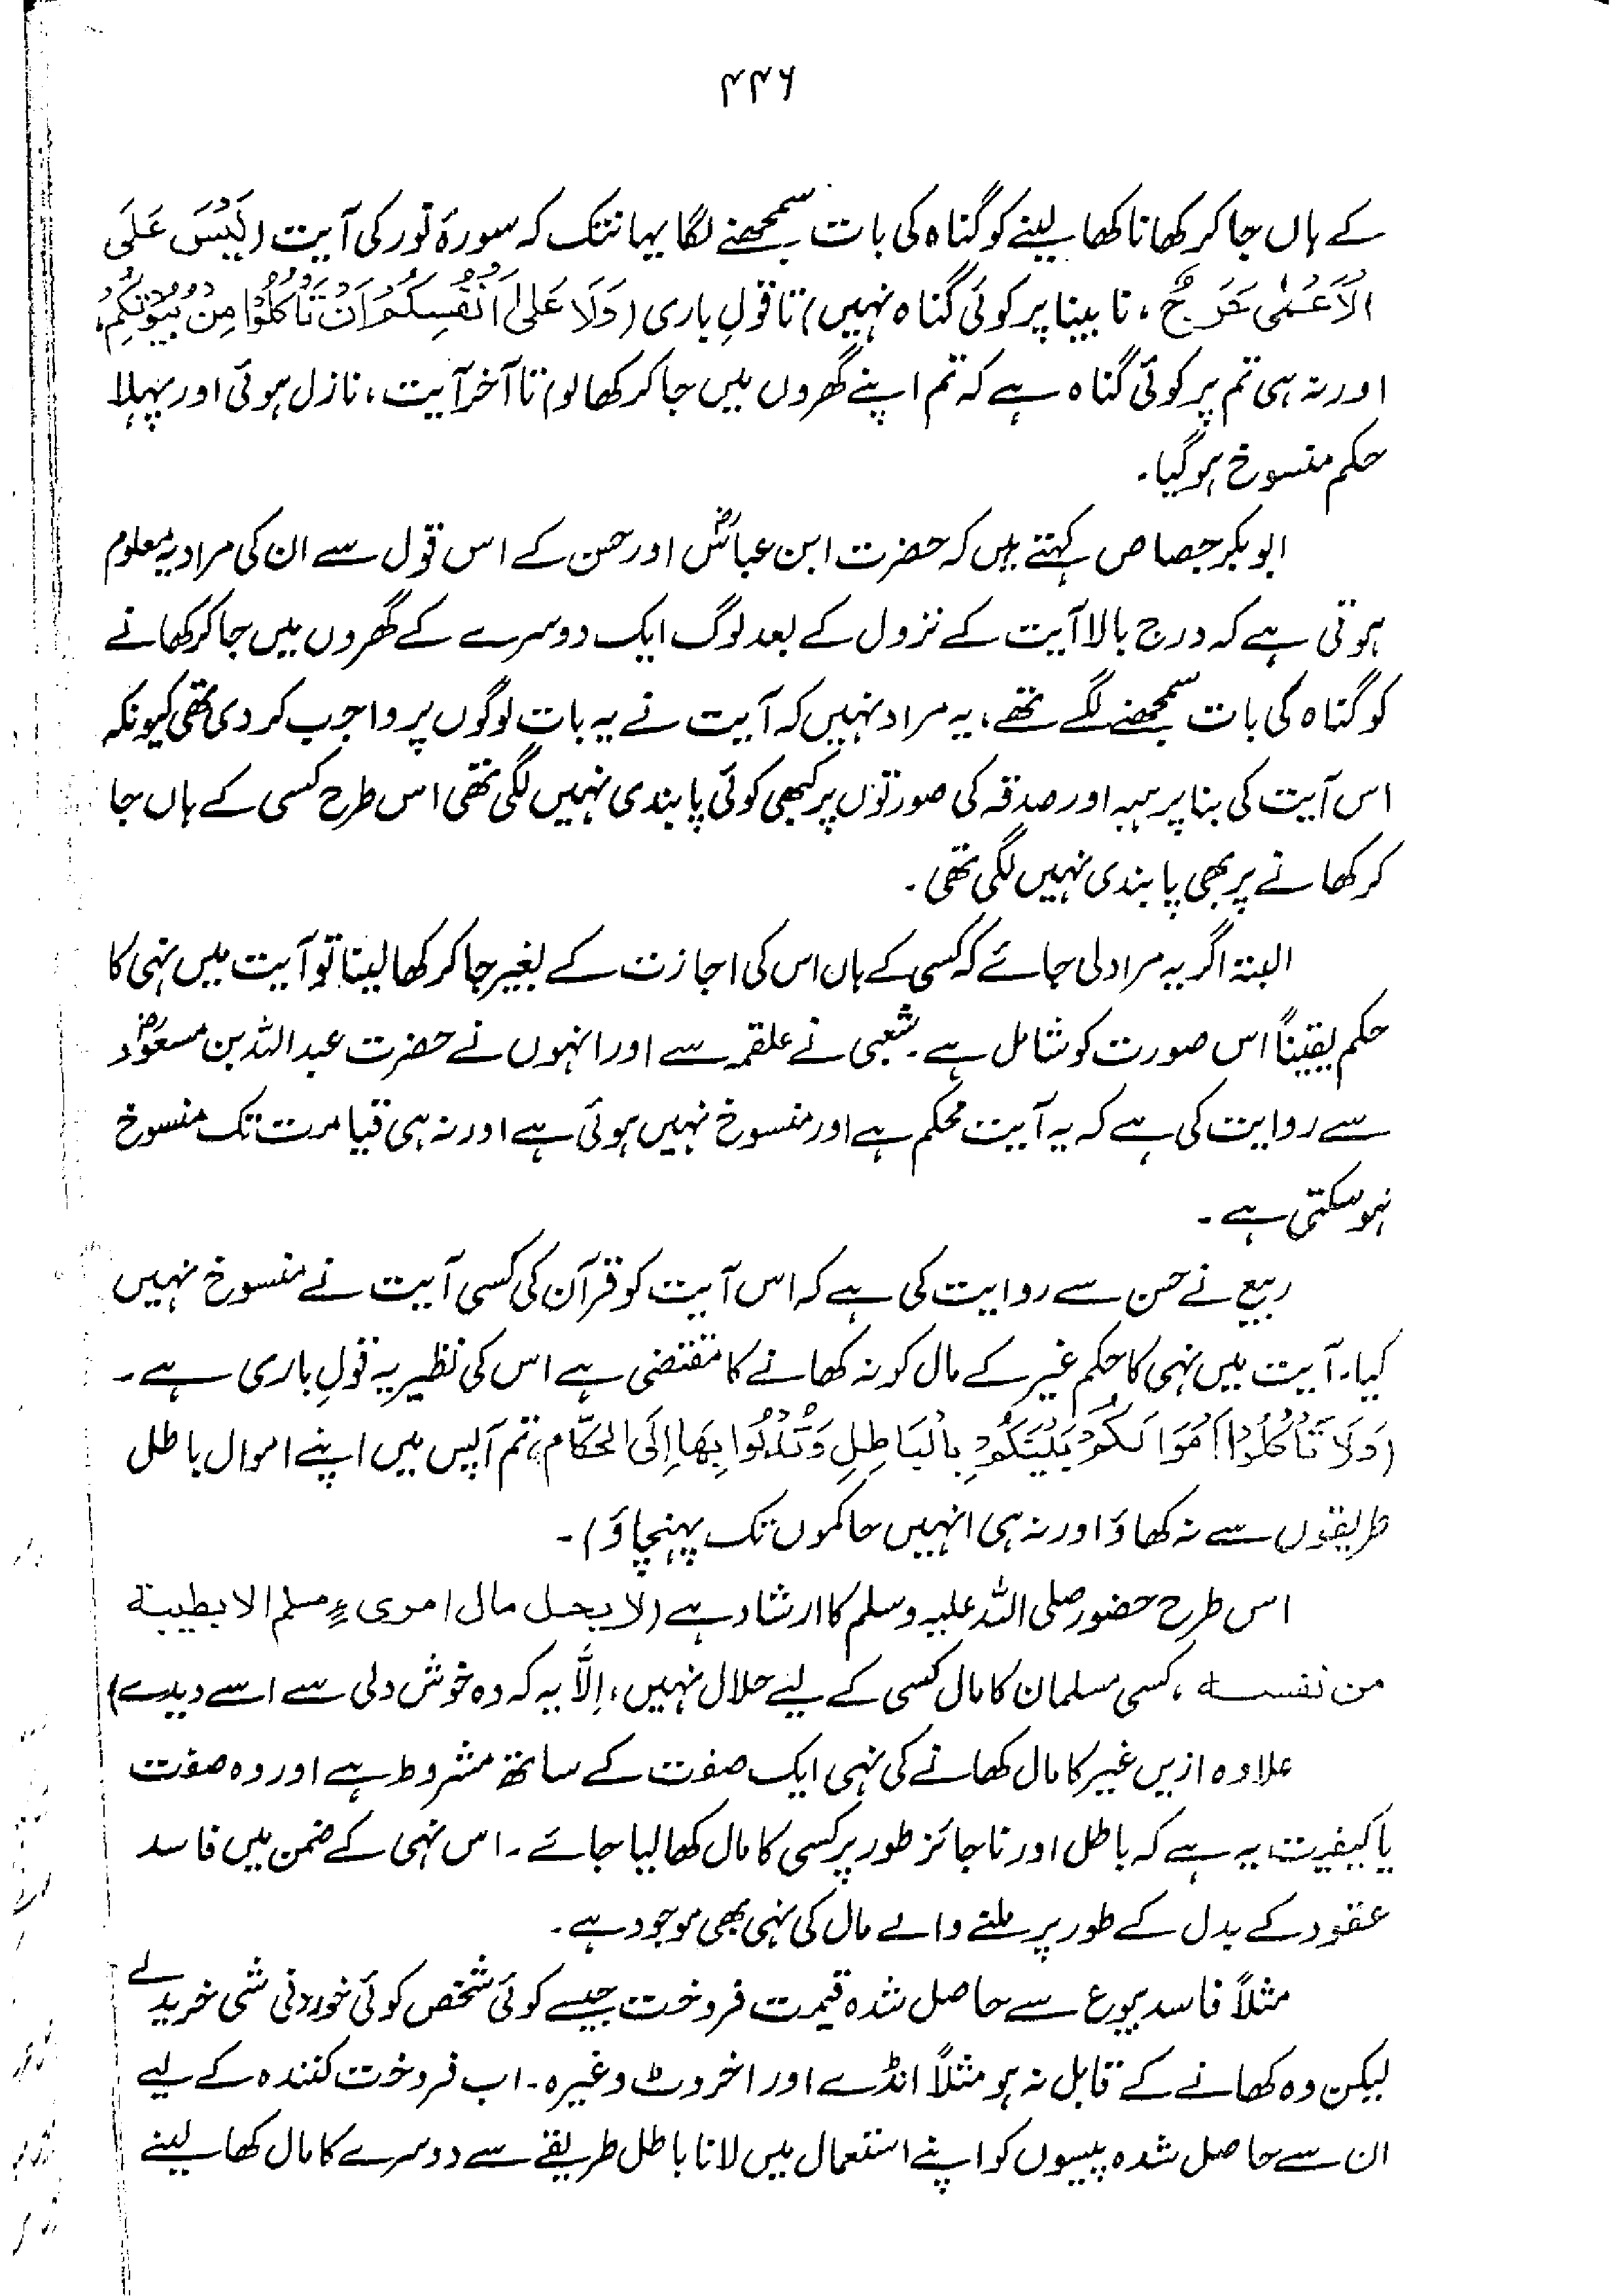 ۴۴۶
کے ہاں جا کر کھانا کھا لینے کو گناہ کی بات سمجھنے لگا یہانتک کہ سورۂ نور کی آیت (لَیْسَ عَلَی
الْاَعْمٰی حَرَجٌ، نابینا پر کوئی گناہ نہیں) تا قولِ باری (وَلَا عَلٰی اَنْفُسِکُمْ اَنْ تَاْکُلُوْا مِنْ بُیُوْتِکُمْ،
اور نہ ہی تم پر کوئی گناہ ہے کہ تم اپنے گھروں میں جا کر کھالو) تا آخر آیت، نازل ہوئی اور پہلا
حکم منسوخ ہو گیا۔
ابوبکر جصاص کہتے ہیں کہ حضرت ابن عباسؓ اور حسن کے اس قول سے ان کی مراد یہ معلوم
ہوتی ہے کہ درج بالا آیت کے نزول کے بعد لوگ ایک دوسرے کے گھروں میں جا کر کھانے
کو گناہ کی بات سمجھنے لگے تھے، یہ مراد نہیں کہ آیت نے یہ بات لوگوں پر واجب کر دی تھی کیونکہ
اس آیت کی بنا پر ہبہ اور صدقہ کی صورتوں پر کبھی کوئی پابندی نہیں لگی تھی اس طرح کسی کے ہاں جا
کر کھانے پر بھی پابندی نہیں لگی تھی۔
البتہ اگر یہ مراد لی جائے کہ کسی کے ہاں اس کی اجازت کے بغیر جا کر کھا لینا تو آیت میں نہی کا
حکم یقیناً اس صورت کو شامل ہے۔ شعبی نے علقمہ سے اور انہوں نے حضرت عبداللہ بن مسعودؓ
سے روایت کی ہے کہ یہ آیت محکم ہے اور منسوخ نہیں ہوئی ہے اور نہ ہی قیامت تک منسوخ
ہو سکتی ہے۔
ربیع نے حسن سے روایت کی ہے کہ اس آیت کو قرآن کی کسی آیت نے منسوخ نہیں
کیا۔ آیت میں نہی کا حکم غیر کے مال کو نہ کھانے کا مقتضی ہے اس کی نظیر یہ قولِ باری ہے۔
(وَلَا تَاْکُلُوْا اَمْوَالَکُمْ بَیْنَکُمْ بِالْبَاطِلِ وَتُدْلُوْا بِھَا اِلَی الْحُکَّامِ، تم آپس میں اپنے اموال باطل
طریقوں سے نہ کھاؤ اور نہ ہی انہیں حاکموں تک پہنچاؤ)۔
اس طرح حضور صلی اللہ علیہ وسلم کا ارشاد ہے (لا یحل مال امریءٍ مسلم الا بطیبۃ
من نفسہ، کسی مسلمان کا مال کسی کے لیے حلال نہیں، اِلاَّ یہ کہ وہ خوش دلی سے اسے دیدے)
علاوہ ازیں غیر کا مال کھانے کی نہی ایک صفت کے ساتھ مشروط ہے اور وہ صفت
یا کیفیت یہ ہے کہ باطل اور ناجائز طور پر کسی کا مال کھا لیا جائے۔ اس نہی کے ضمن میں فاسد
عقود کے بدل کے طور پر ملنے والے مال کی نہی بھی موجود ہے۔
مثلاً فاسد بیوع سے حاصل شدہ قیمت فروخت جیسے کوئی شخص کوئی خوردنی شی خرید لے
لیکن وہ کھانے کے قابل نہ ہو مثلاً انڈے اور اخروٹ وغیرہ۔ اب فروخت کنندہ کے لیے
ان سے حاصل شدہ پیسوں کو اپنے استعمال میں لانا باطل طریقے سے دوسرے کا مال کھا لینے